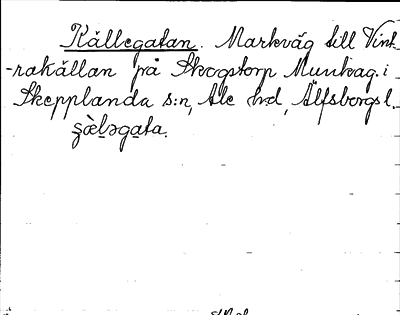 Källegatan. Markväg till Vint-
-rakällan på Skogstorp Munkag. i
Skepplanda s:n, Ale hd, Älfsborgs l.